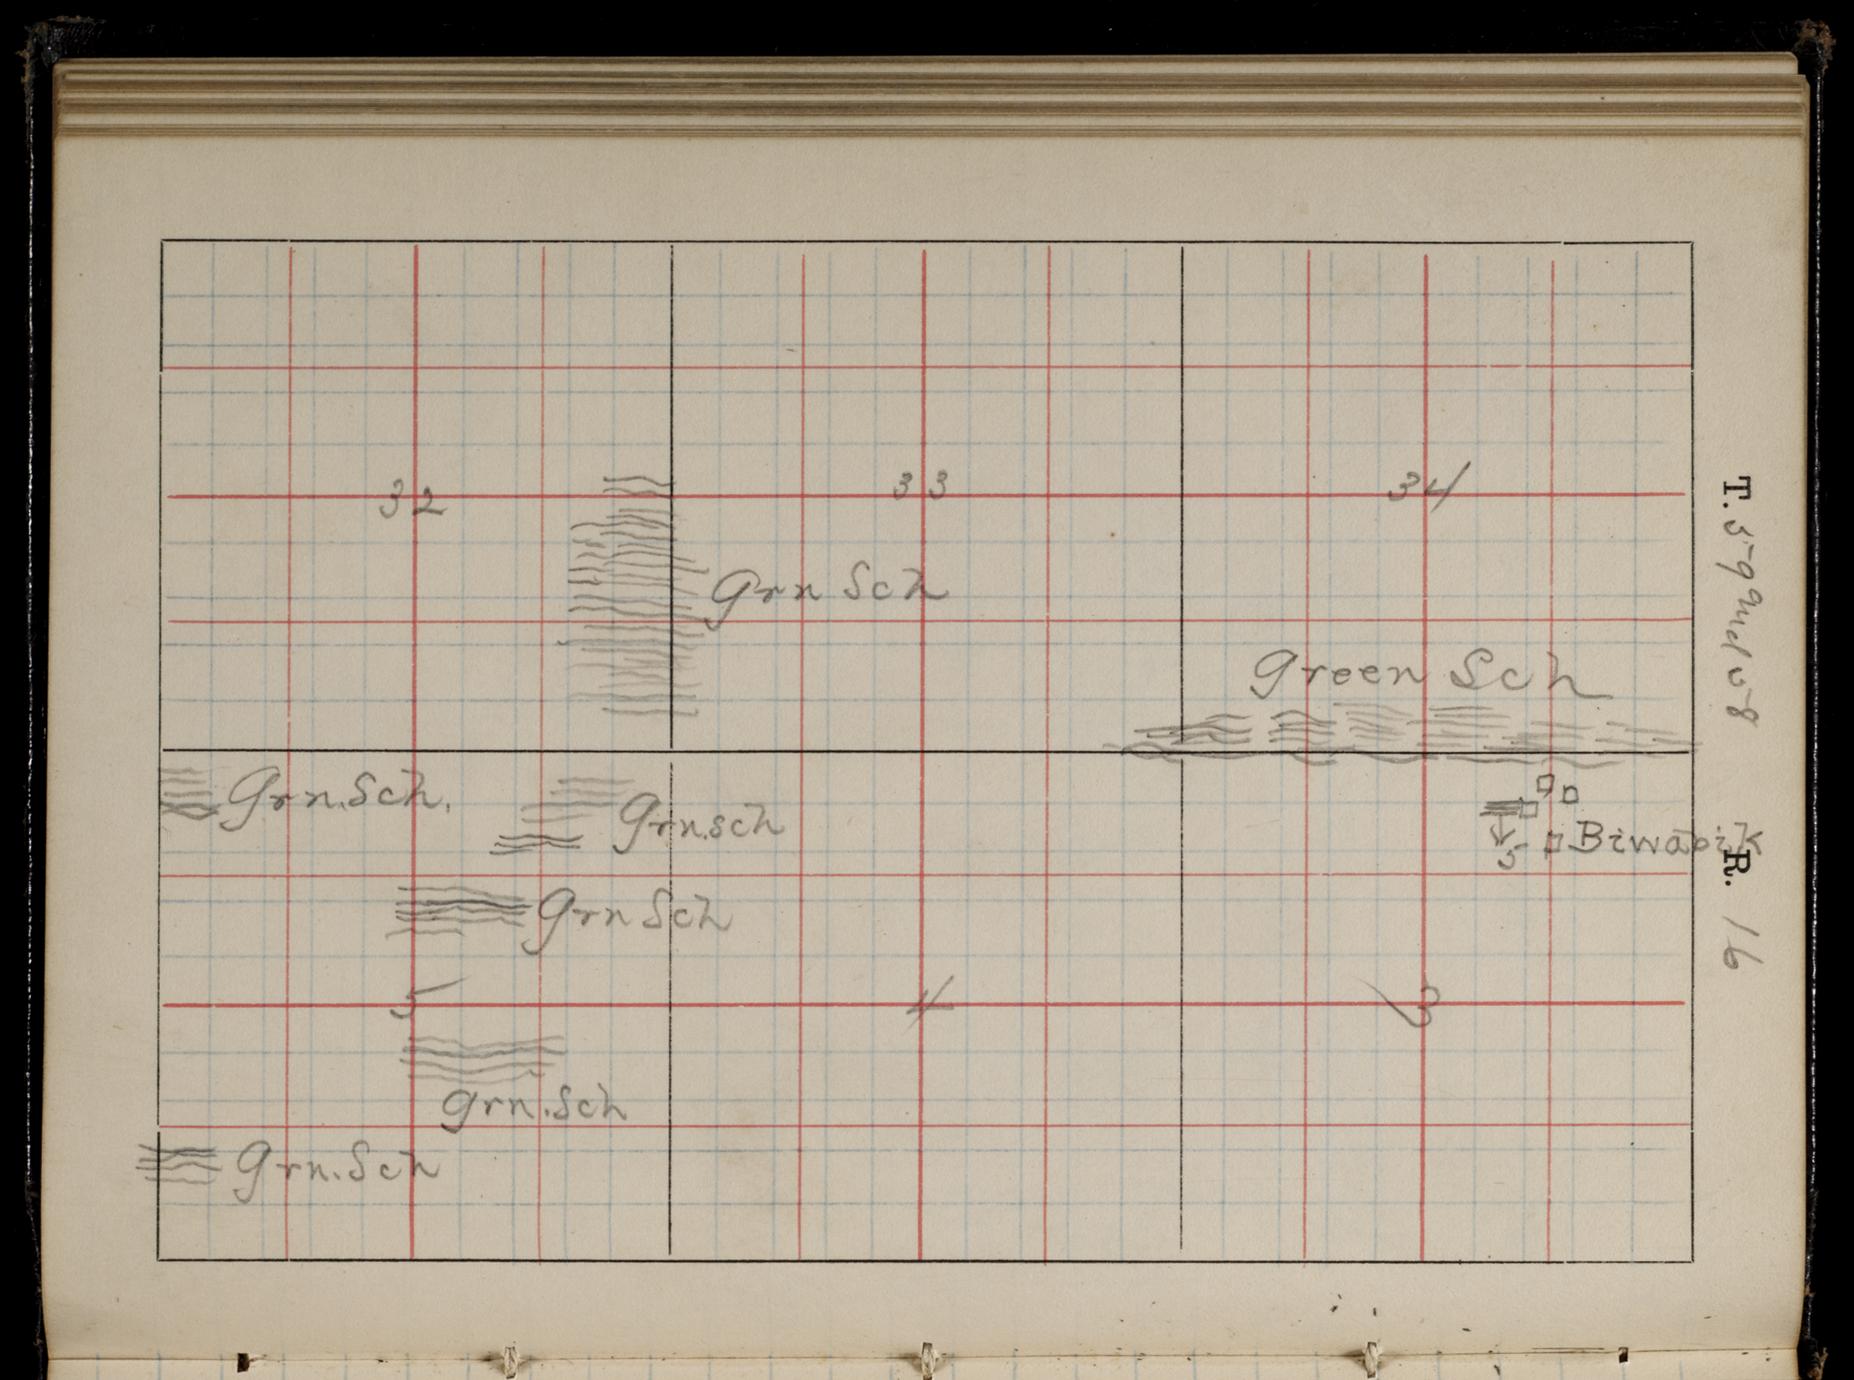 32
33
34
Grn Sch
Green Sch
Grn. Sch.
Grn. sch
5
Biwabik
Grn Sch
5
4
3
grn. sch
Grn. Sch
T. 59 and 58
R. 16